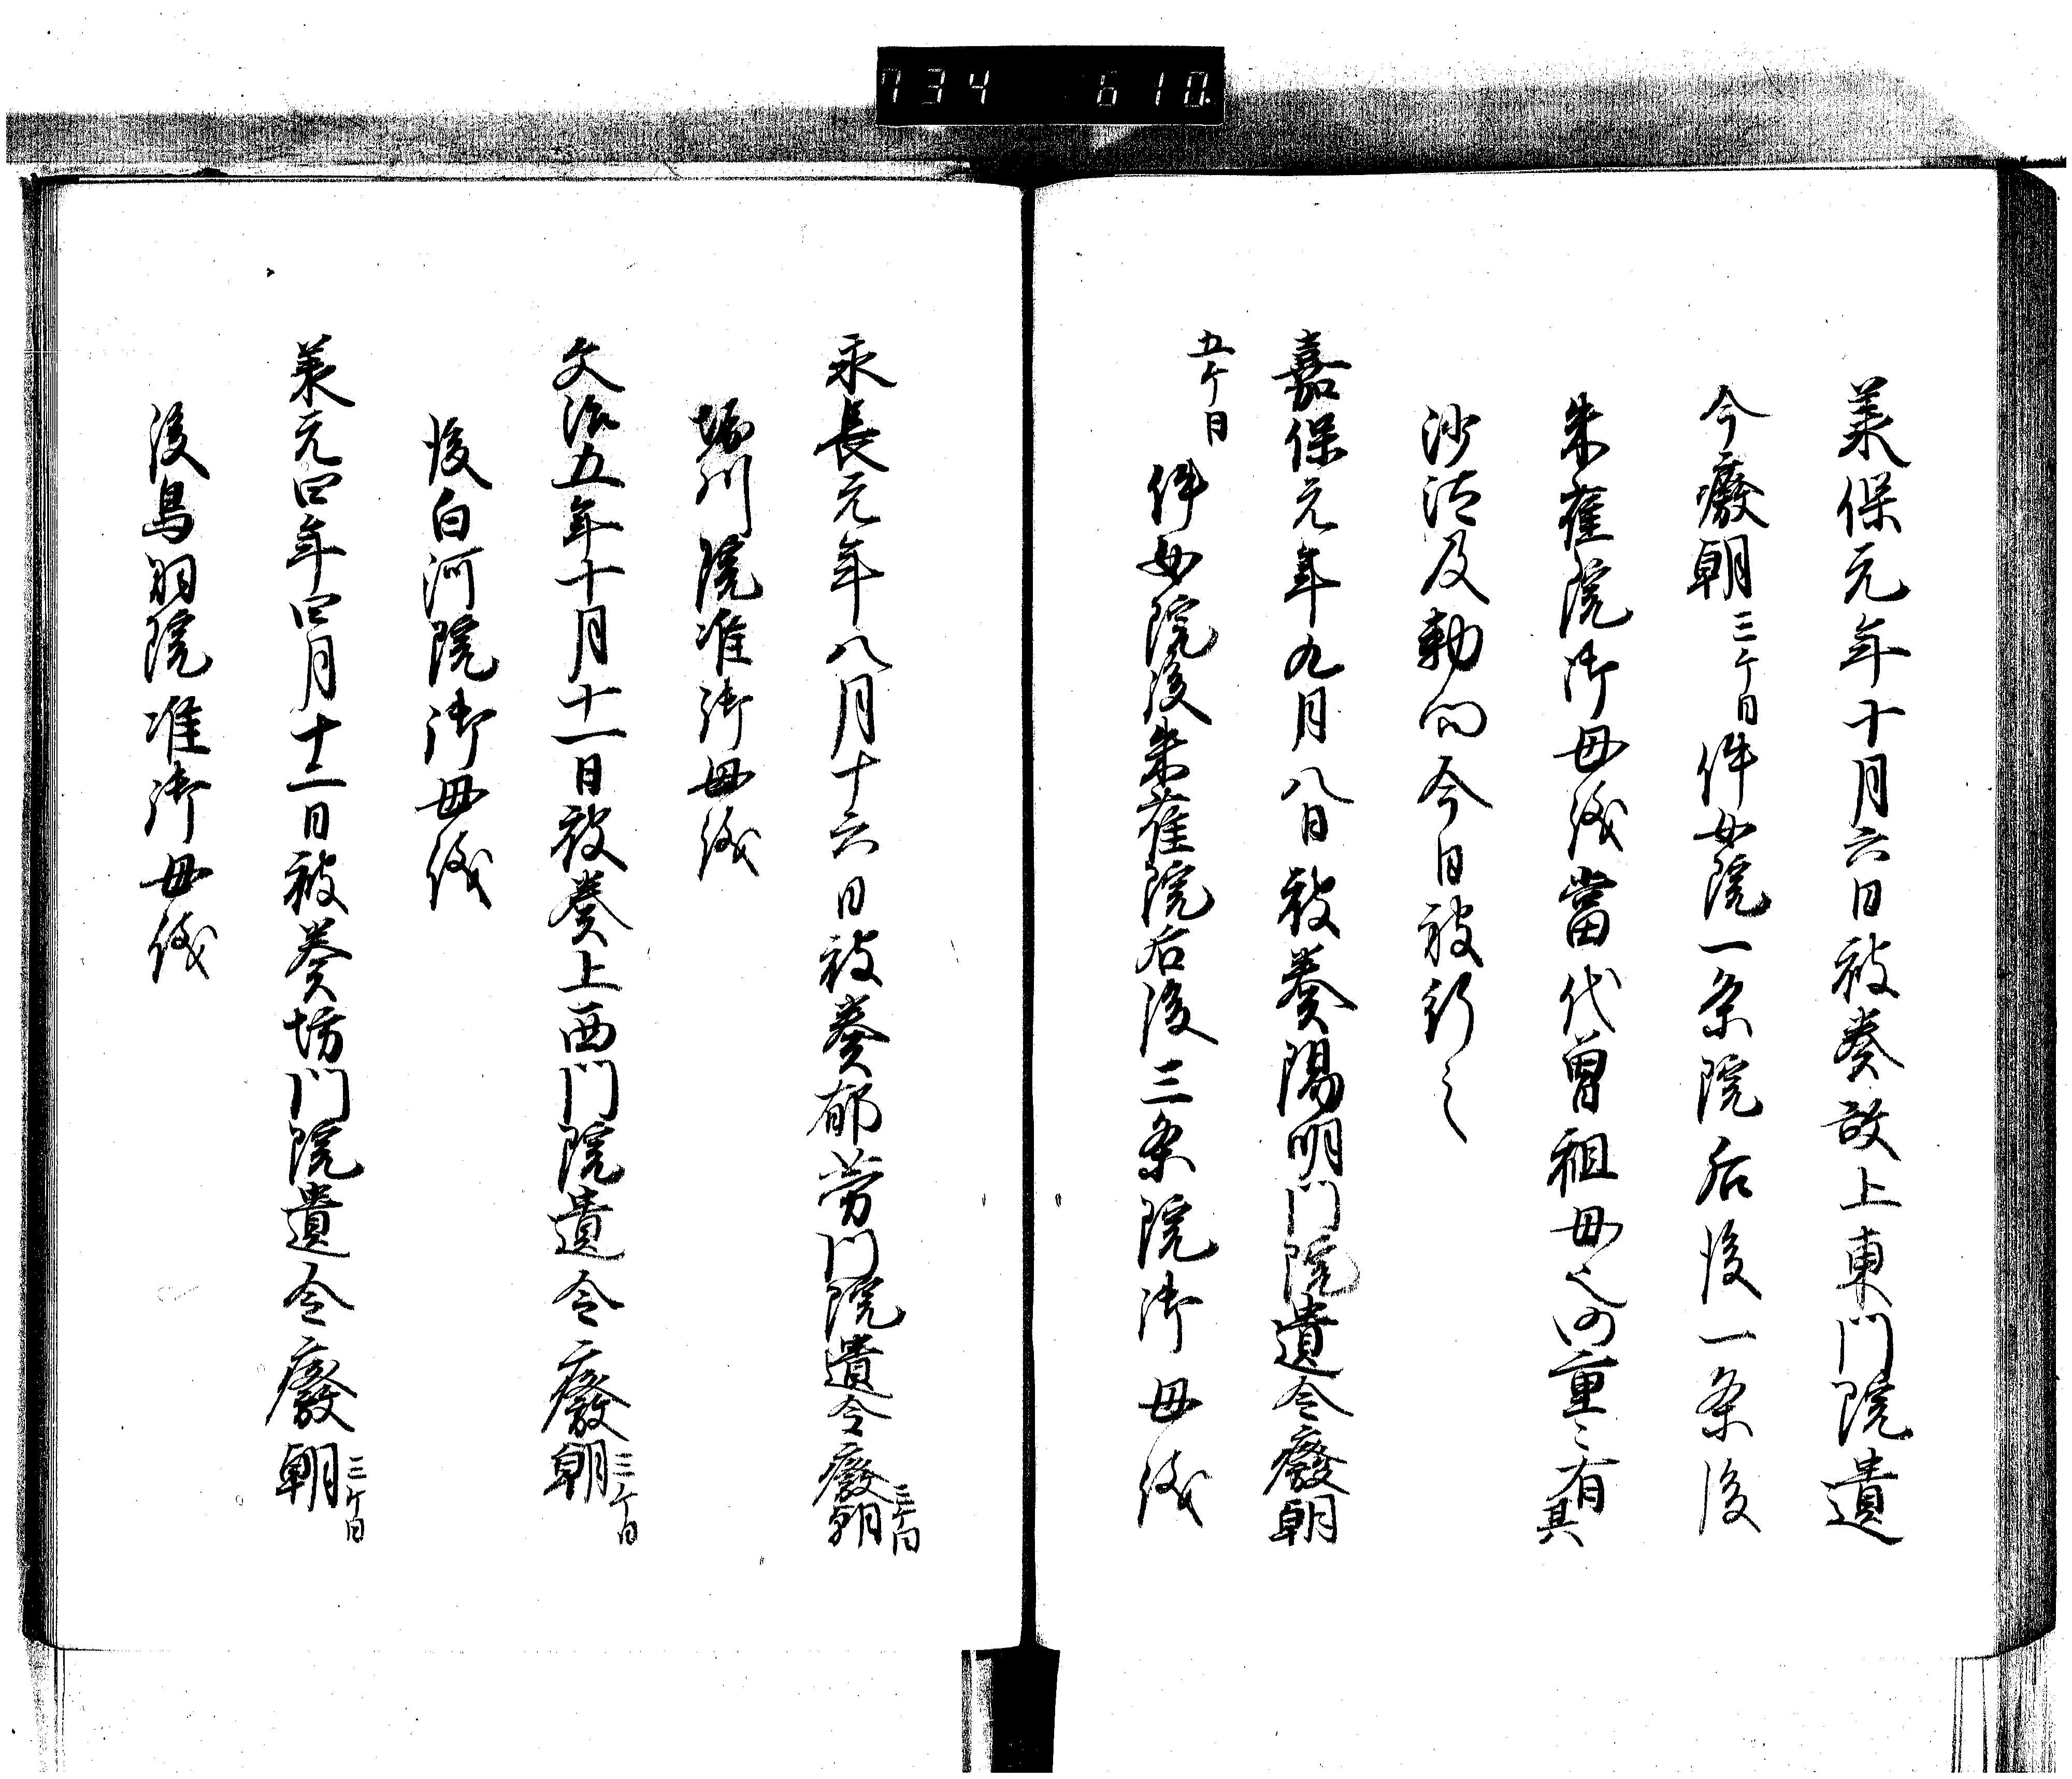 734 610
承保元年十月六日被奏故上東門院遺
令廃朝三ケ日件女院一条院后後一条後
朱雀院御母儀當代曽祖母也仍重々有其
沙汰及勅問今日被行之
嘉保元年九月八日被奏陽明門院遺令廃朝
五ケ日件女院後朱雀院后後三条院御母儀
永長元年八月十六日被奏郁芳門院遺令廃朝三ケ日
堀川院准御母儀
文治五年十月十一日被奏上西門院遺令廃朝三ケ日
後白河院御母儀
承元四年四月十二日被奏坊門院遺令廃朝三ケ日
後鳥羽院准御母儀